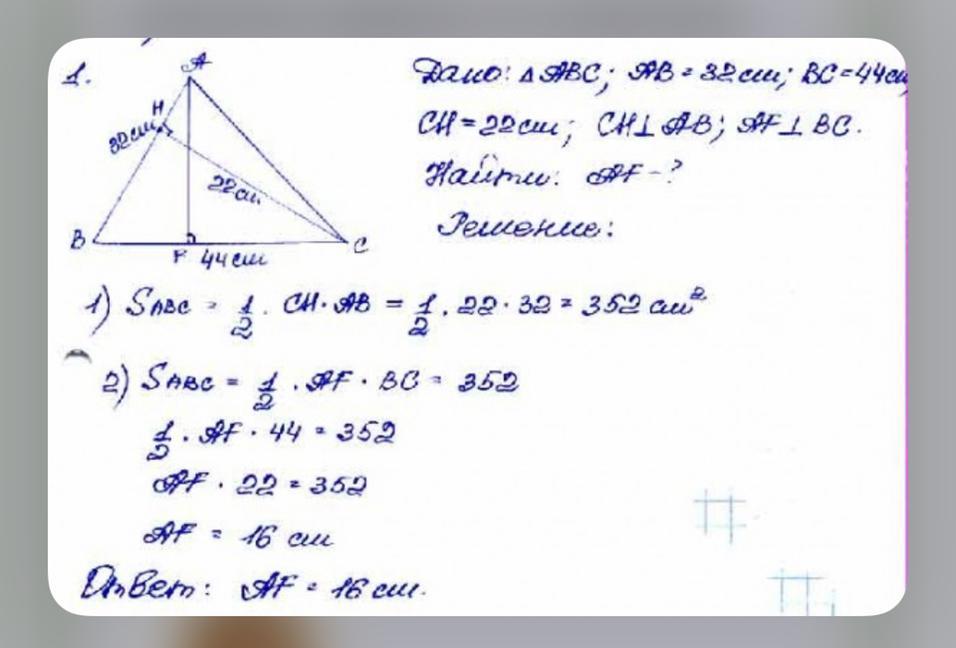 1.
A
H
32см
22см
B
F
44см
C
Дано: △ABC; AB = 32см; BC = 44см
CH = 22см; CH⊥AB; AF⊥BC.
Найти: AF - ?
Решение:
1) SABC = 1/2 · CH · AB = 1/2 · 22 · 32 = 352 см²
2) SABC = 1/2 · AF · BC = 352
1/2 · AF · 44 = 352
AF · 22 = 352
AF = 16 см
Ответ: AF = 16 см.